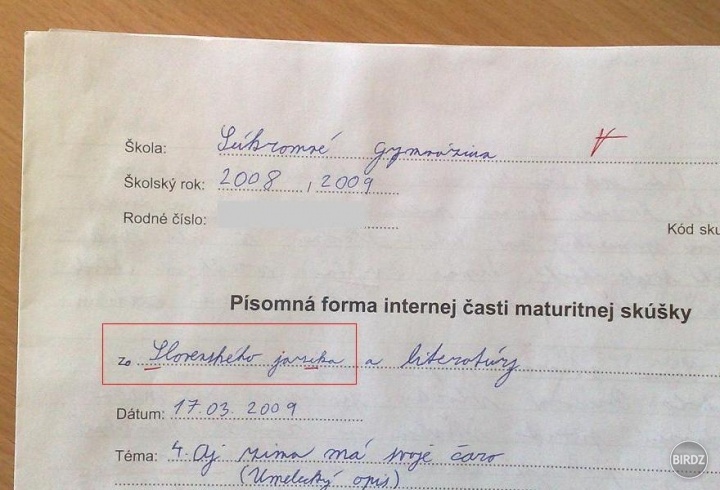 Škola: Súkromné gymnázium
Školský rok: 2008 / 2009
Rodné číslo:
Kód sku
Písomná forma internej časti maturitnej skúšky
Zo Slovenského jazika a literatúry
Dátum: 17.03. 2009
Téma: 4. Aj zima má svoje čaro
(Umelecký opis)
BIRDZ